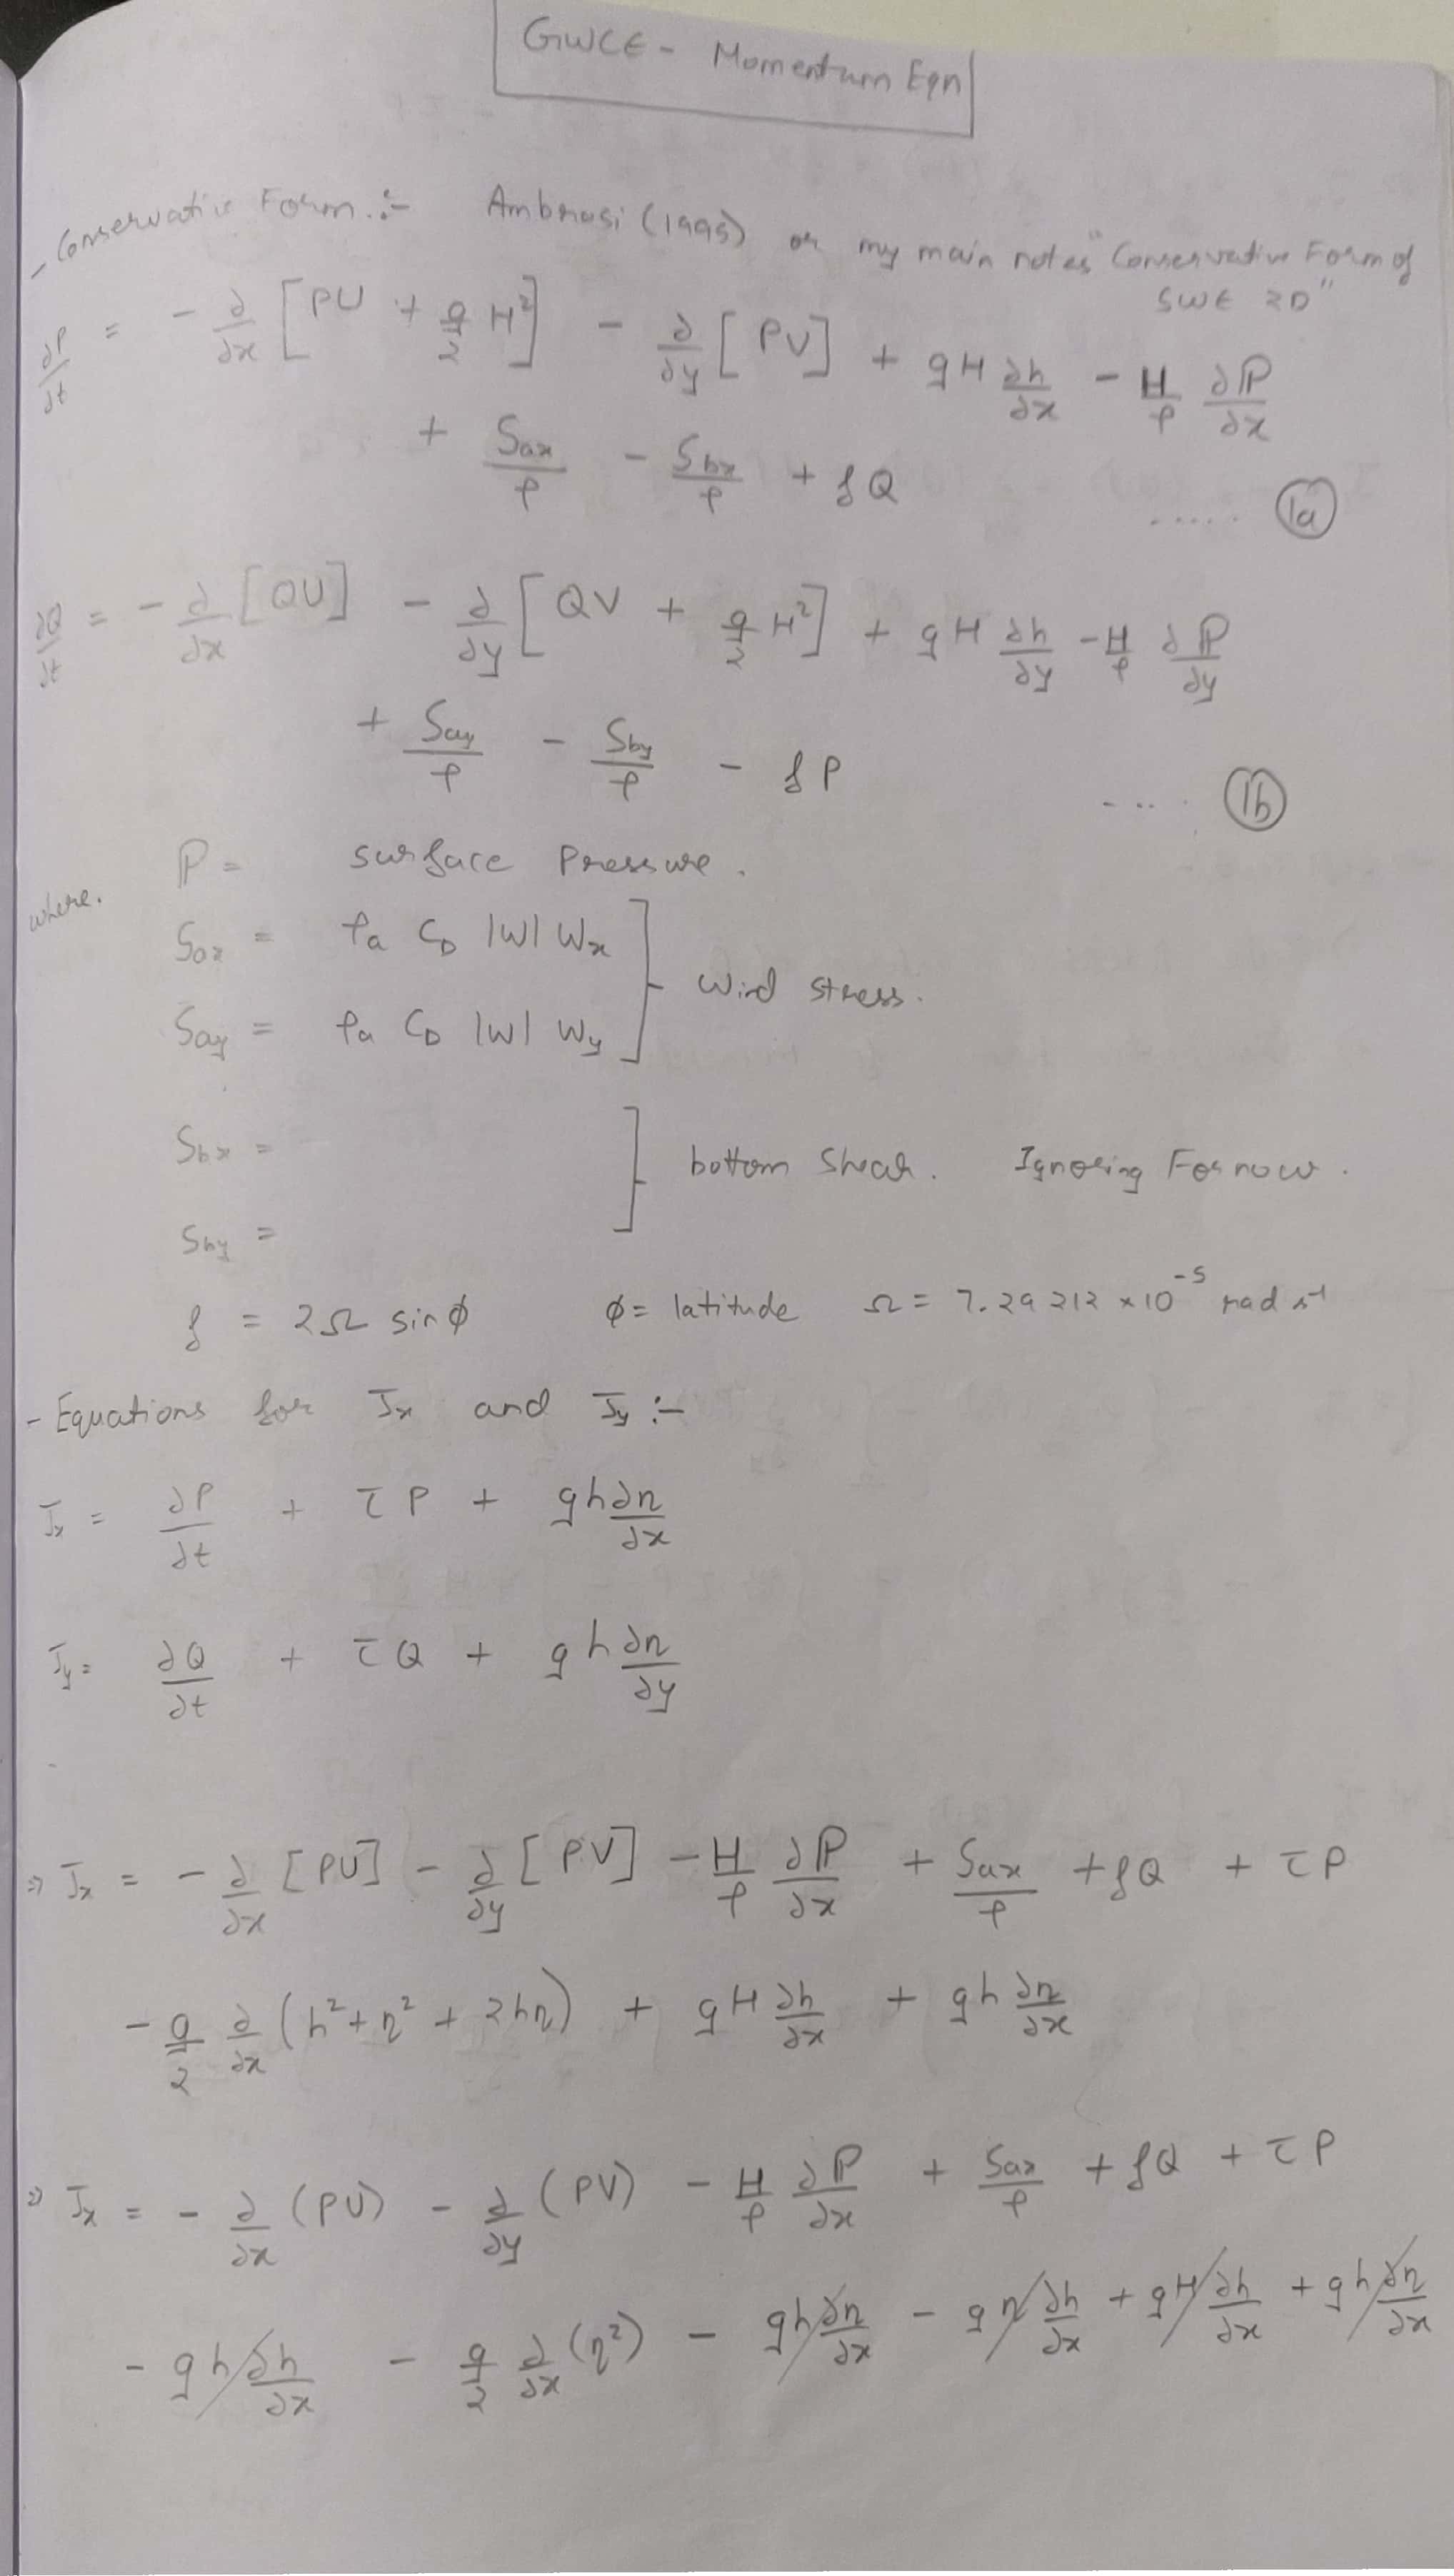 GWCE - Momentum Eqn
- Conservative Form :- Ambrosi (1995) or my main notes "Conservative Form of
SWE 2D"
∂P/∂t = - ∂/∂x [PU + g/2 H²] - ∂/∂y [PV] + gH ∂h/∂x - H/ρ ∂ℙ/∂x
+ Sax/ρ - Sbx/ρ + fQ ..... (1a)
∂Q/∂t = - ∂/∂x [QU] - ∂/∂y [QV + g/2 H²] + gH ∂h/∂y - H/ρ ∂ℙ/∂y
+ Say/ρ - Sby/ρ - fP .... (1b)
where. ℙ = surface Pressure.
Sax = ρa CD |W| Wx
Wind stress.
Say = ρa CD |W| Wy
Sbx =
bottom Shear. Ignoring For now.
Sby =
f = 2Ω sinϕ ϕ = latitude Ω = 7.29212 × 10⁻⁵ rad s⁻¹
- Equations for Jx and Jy :-
Jx = ∂P/∂t + τP + gh ∂η/∂x
Jy = ∂Q/∂t + τQ + gh ∂η/∂y
⇒ Jx = - ∂/∂x [PU] - ∂/∂y [PV] - H/ρ ∂ℙ/∂x + Sax/ρ + fQ + τP
- g/2 ∂/∂x (h² + η² + 2hη) + gH ∂h/∂x + gh ∂η/∂x
⇒ Jx = - ∂/∂x (PU) - ∂/∂y (PV) - H/ρ ∂ℙ/∂x + Sax/ρ + fQ + τP
- gh ∂h/∂x - g/2 ∂/∂x (η²) - gh ∂η/∂x - gη ∂h/∂x + gH ∂h/∂x + gh ∂η/∂x